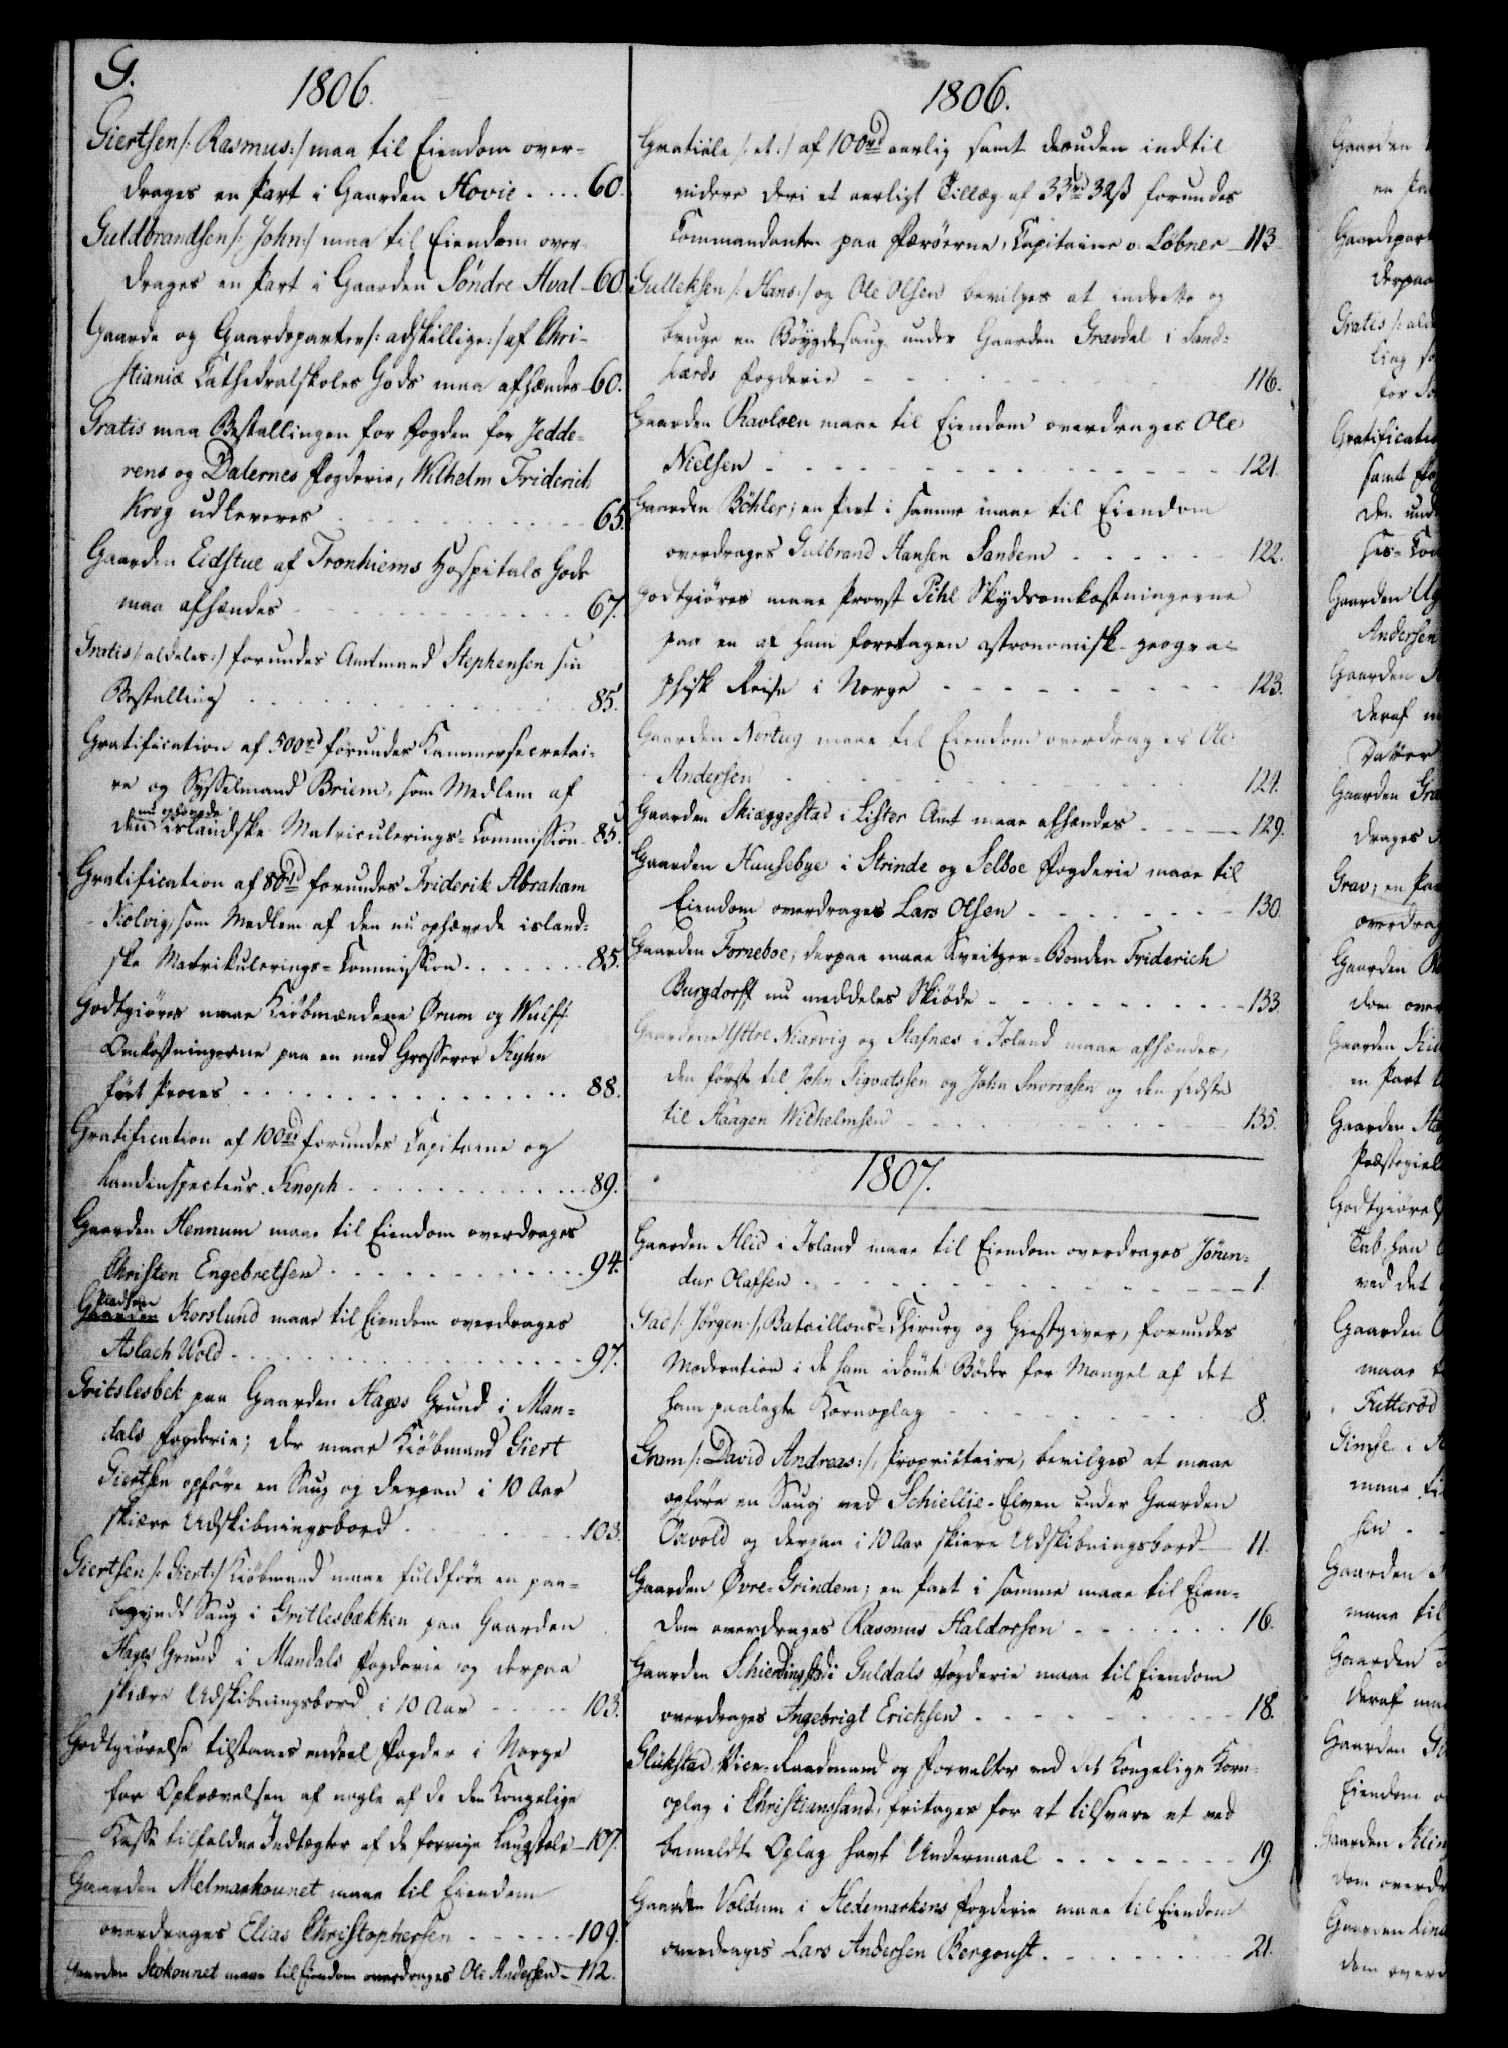 G.
1806.
Giertsen /: Rasmus :/ maa til Eiendom over-
drages en Part i Gaarden Hovie .... 60.
Guldbrandsen /: John :/ maa til Eiendom over-
drages en Part i Gaarden Söndre Hval - 60.
Gaarde og Gaardeparter /: adskillige :/ af Chri-
stianiæ Cathedralskoles Gods maa afhændes - 60.
Gratis maa Bestallingen for Fogden for Jedde-
rens og Dalernes Fogderie, Wilhelm Friderich
Krog udleveres - - - 65.
Gaarden Eidstue af Tronhiems Hospitals Gods
maa afhændes - - - 67.
Gratis /: aldeles :/ forundes Amtmand Stephensen sin
Bestalling - - - 85.
Gratification af 500 rd forundes Kammersecretai-
re og Sysselmand Briem, som Medlem af
nu ophævede
den islandske Matriculerings-Commission - 85.
Gratification af 80 rd forundes Friderik Abraham
Kolvig, som Medlem af den nu ophævede island-
ske Matrikulerings-Commission . . . . . 85.
Godtgiöres maae Kiöbmændene Ørum og Wulff
Omkostningerne paa en med Grosserer Kyhn
fört Proces . . . . . 88.
Gratification af 100 rd forundes Capitaine og
Landinspecteur Knoph . . . . . 89.
Gaarden Hennum maae til Eiendom overdrages
Christen Engebretsen . . . . . 94.
Pladsen
Gaarden Korslund maae til Eiendom overdrages
Aslach Wold . . . . . 97.
Gritslesbek paa Gaarden Hages Grund i Man-
dals Fogderie; der maae Kiöbmand Giert
Giertsen opföre en Saug og derpaa i 10 Aar
skiære Udskibningsbord . . . 103.
Giertsen /: Giert :/ Kiöbmand maae fuldföre en paa-
begyndt Saug i Gritlesbækken paa Gaarden
Hages Grund i Mandals Fogderie og derpaa
skiære Udskibningsbord i 10 Aar - - - 103.
Godtgiörelse tilstaaes endeel Fogder i Norge
for Opkrævelsen af nogle af de den Kongelige
Kasse tilfaldne Indtægter af de forrige Laugstole - 107.
Gaarden Melmarkounet maae til Eiendom
overdrages Elias Christophersen - - - 109.
Gaarden Stokounet maae til Eiendom overdrages Ole Andersen - 112.
1806.
Gratiale /: et :/ af 100 rd aarlig samt desuden indtil
videre deri et aarligt Tillæg af 33 rd 32 ß forundes
Commandanten paa Færöerne, Capitaine v. Löbner - 113.
Gulleksen /: Hans :/ og Ole Olsen bevilges at indrette og
bruge en Böygdesaug under Gaarden Gravdal i Sand-
hærds Fogderie - - - 116.
Gaarden Ravloen maae til Eiendom overdrages Ole
Nielsen - - - 121.
Gaarden Böhler; en Part i samme maae til Eiendom
overdrages Gulbrand Hansen Sandem - - - 122.
Godtgiöres maae Provst Pihl Skydsomkostningerne
paa en af ham foretagen astronomisk-geogra-
phisk Reise i Norge - - - 123.
Gaarden Nortug maae til Eiendom overdrages Ole
Andersen - - - 124.
Gaarden Skiæggestad i Lister Amt maae afhændes - - - 129.
Gaarden Huusebye i Strinde og Selboe Fogderie maae til
Eiendom overdrages Lars Olsen - - - 130.
Gaarden Forneboe, derpaa maae Sveitzer-Bonden Friderich
Burgdorff nu meddeles Skiöde - - - 133.
Gaardene Yttre Niarvig og Stafnæs i Island maae afhændes,
den förste til John Sigvatssen og John Snorrasen og den sidste
til Haagen Wilhelmsen - - - 135.
1807.
Gaarden Hlid i Island maae til Eiendom overdrages Jörun-
dur Olafsen - - - 1.
Gad /: Jörgen :/, Bataillons-Chirurg og Giestgiver, forundes
Moderation i de ham idömte Böder for Mangel af det
ham paalagte Kornoplag - - - 8.
Gram /: David Andreas :/, Proprietaire, bevilges at maae
opföre en Saug ved Schiellie-Elven under Gaarden
Oxvold og derpaa i 10 Aar skiære Udskibningsbord - 11.
Gaarden Øvre-Grindem; en Part i samme maae til Eien-
dom overdrages Rasmus Haldorsen - - - 16.
Gaarden Schierdingstad i Guldals Fogderie maae til Eiendom
overdrages Ingebrigt Ericksen - - - 18.
Glükstad, Vice-Raadmand og Forvalter ved det Kongelige Korn-
oplag i Christianssand, fritages for at tilsvare et ved
bemeldte Oplag havt Undermaal - - - 19.
Gaarden Voldum i Hedemarkens Fogderie maae til Eiendom
overdrages Lars Andersen Bergoust - - - 21.
Gaarden
Gaardepart
derpaa
Gratis
ling
for
Gratificatio
samt
Gaarden
Andersen
Gaarden
deraf
Gaarden
drages
Grav; en
overdrag
Gaarden
dom over
Gaarden
en Part
Gaarden
Præstegield
Godtgiörels
han
ved det
Gaarden
maae
Gimse i
maae
sen
Gaarden
maae til
Gaarden
deraf maa
Gaarden
Eiendom
Gaarden
dom overdr
Gaarden
dom overd